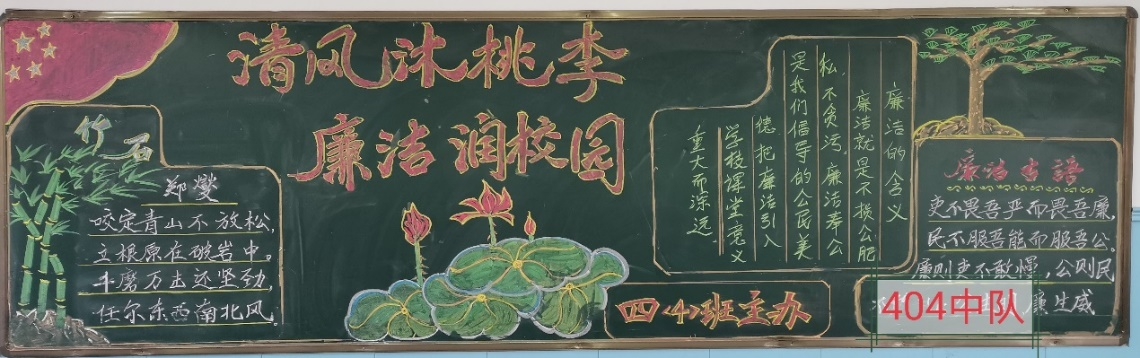 清风沐桃李
廉洁润校园
竹石
郑燮
咬定青山不放松,
立根原在破岩中。
千磨万击还坚劲,
任尔东西南北风
廉洁的含义
廉洁就是不损公肥
私,不贪污,廉洁奉公
是我们倡导的公民美
德,把廉洁引入
学校课堂意义
重大而深远
四(4)班主办
廉洁古语
吏不畏吾严而畏吾廉,
民不服吾能而服吾公。
廉则吏不敢慢,公则民
廉生威
404中队